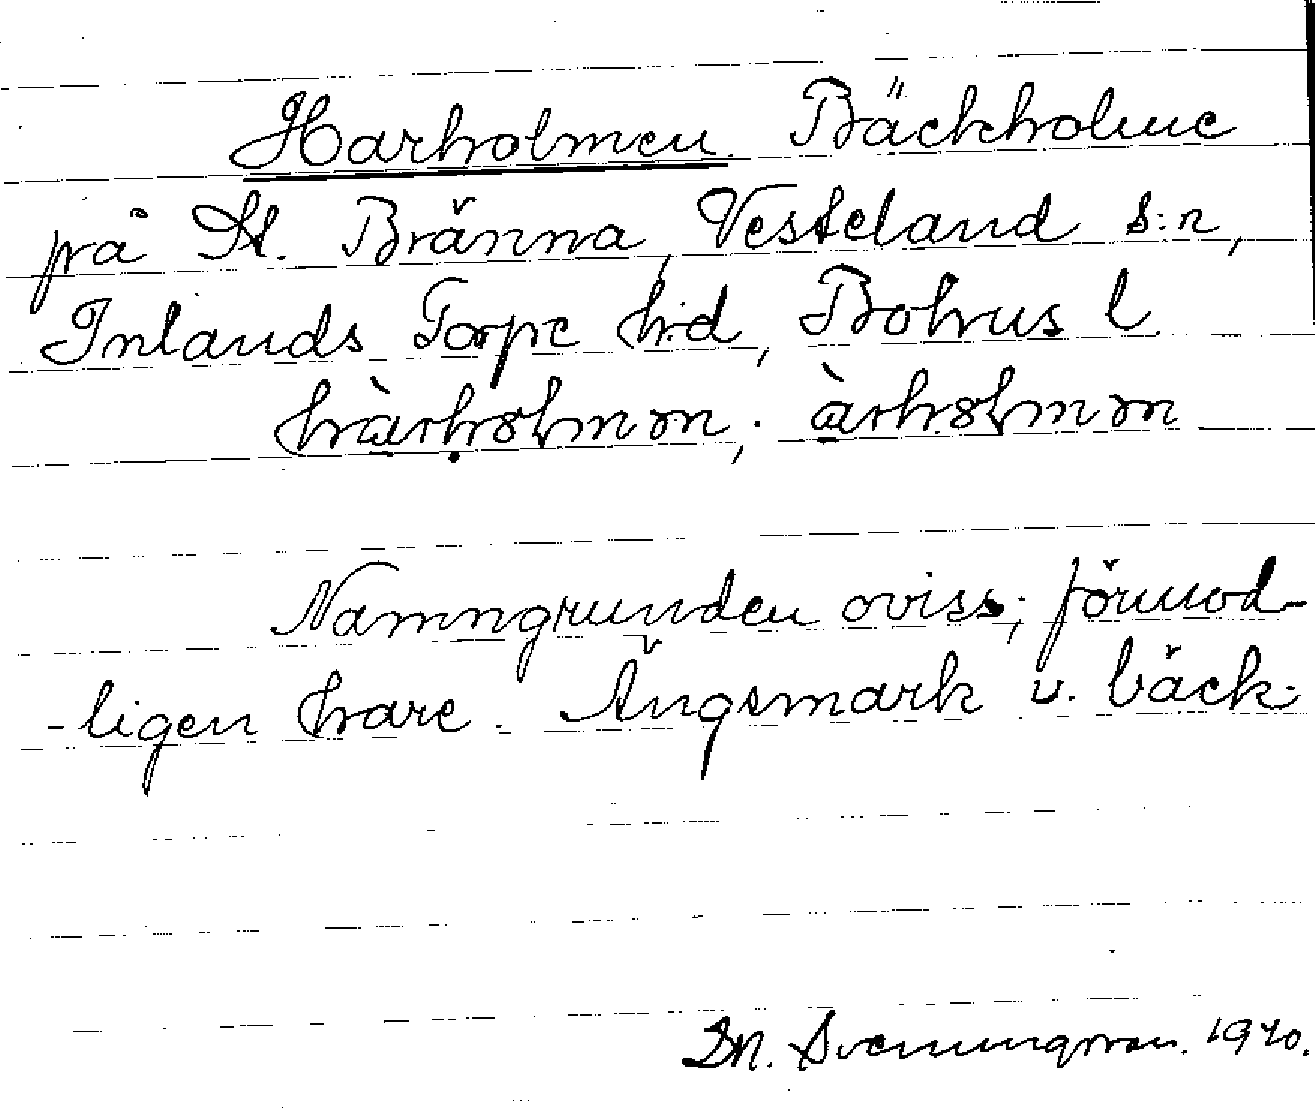 Harholmen. Bäckholme
på St. Bränna, Vesteland s:n,
Inlands Torpe h:d, Bohus l
hàrholmən; àrholmən
Namngrunden oviss; förmod-
-ligen hare. Ängsmark v. bäck.
Dn. Svenungsson. 1940.